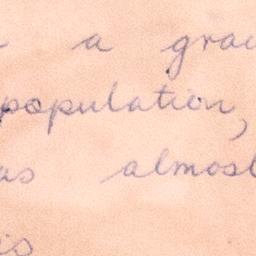 a grad
population,
as almost
is